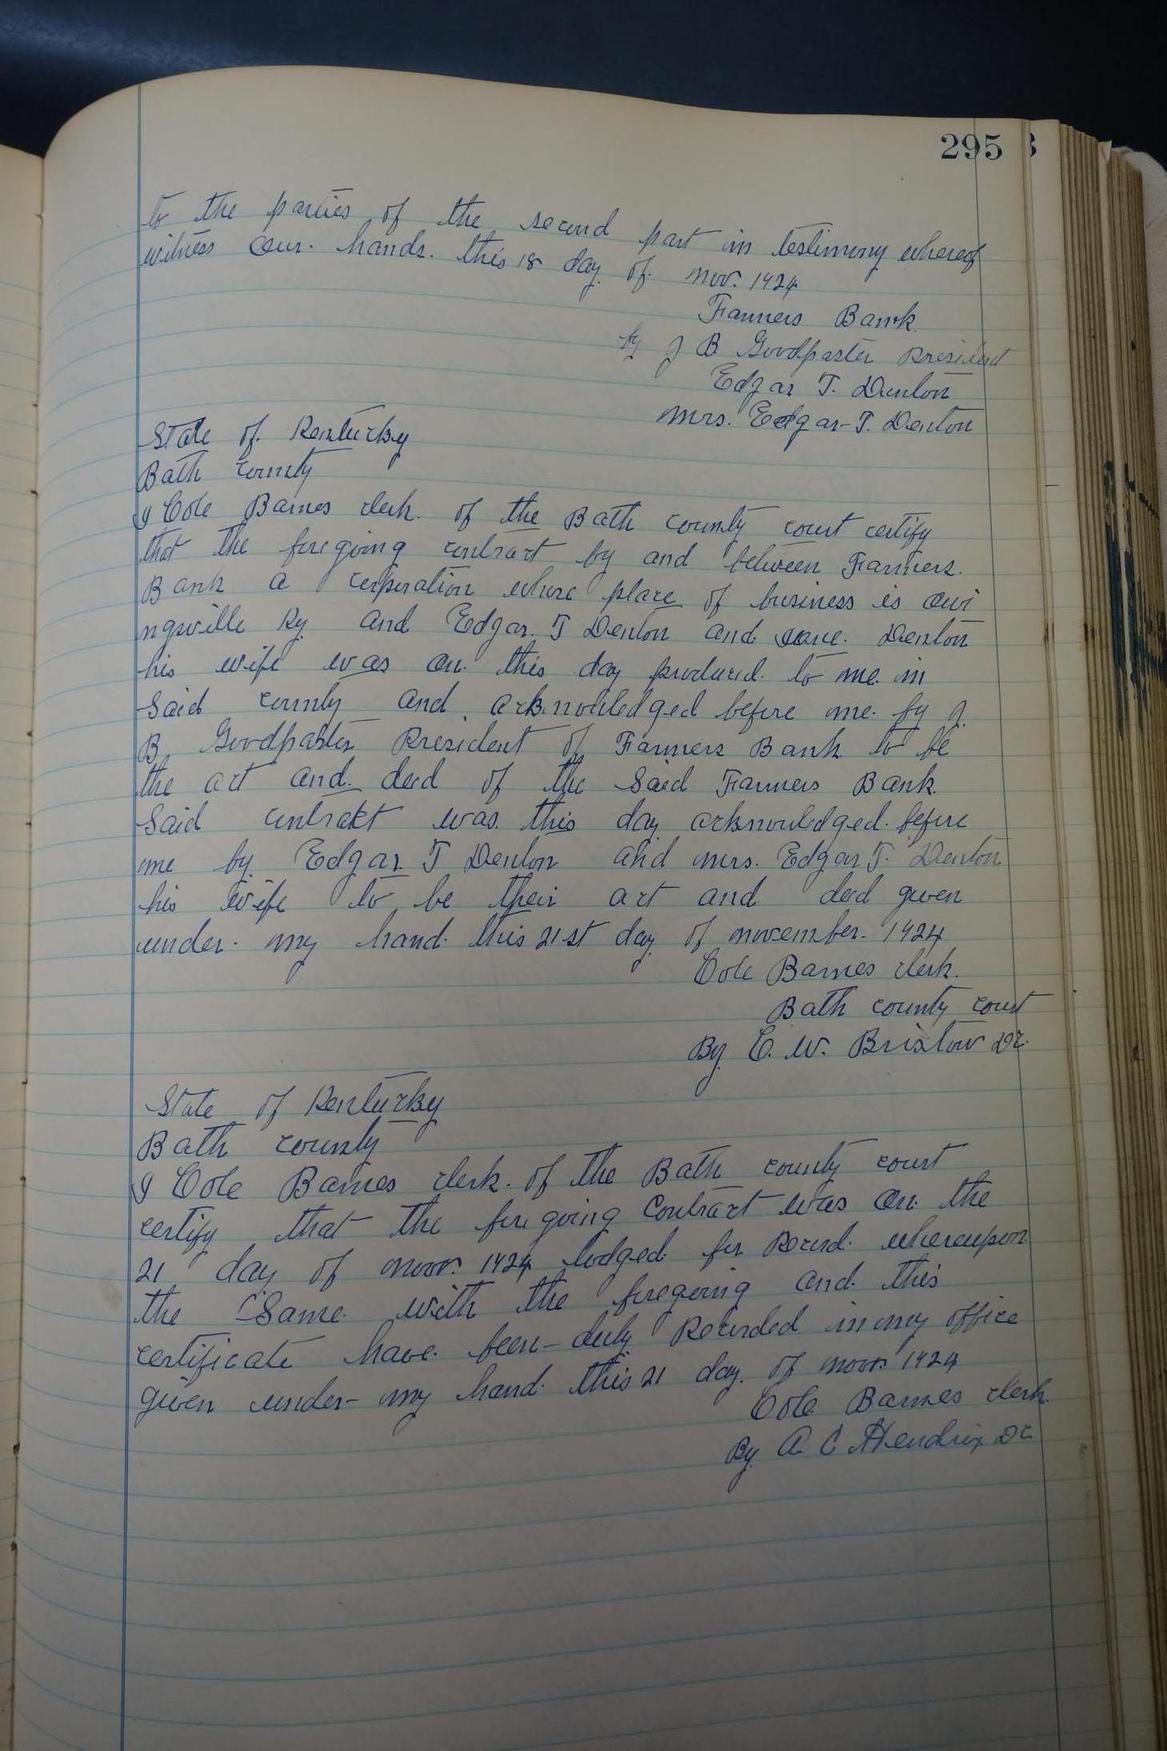 295
to the parties of the second part in testimony whereof
witness our hands. this 18 day of Nov. 1924
Farmers Bank
by J B Goodpaster President
Edgar T. Denton
Mrs. Edgar T. Denton
State of Kentucky
Bath County
I Cole Barnes clerk of the Bath County court certify
that the foregoing contract by and between Farmers
Bank a corporation whose place of business is Owi
ngsville Ky and Edgar T Denton and Denton
his wife was on this day produced to me in
said county and acknowledged before me by J.
B. Goodpaster President of Farmers Bank to be
the act and deed of the said Farmers Bank
Said contract was this day acknowledged before
me by Edgar T Denton and Mrs. Edgar T. Denton
his wife to be their act and deed given
under my hand this 21st day of November. 1924
Cole Barnes clerk.
Bath county court
By C. W. Bristow DC.
State of Kentucky
Bath county
I Cole Barnes clerk of the Bath county court
certify that the foregoing Contract was on the
21 day of Nov. 1924 lodged for Record whereupon
the Same with the foregoing and this
certificate have been duly Recorded in my office
given under my hand this 21 day of Nov 1924
Cole Barnes clerk
By A C Hendrix DC